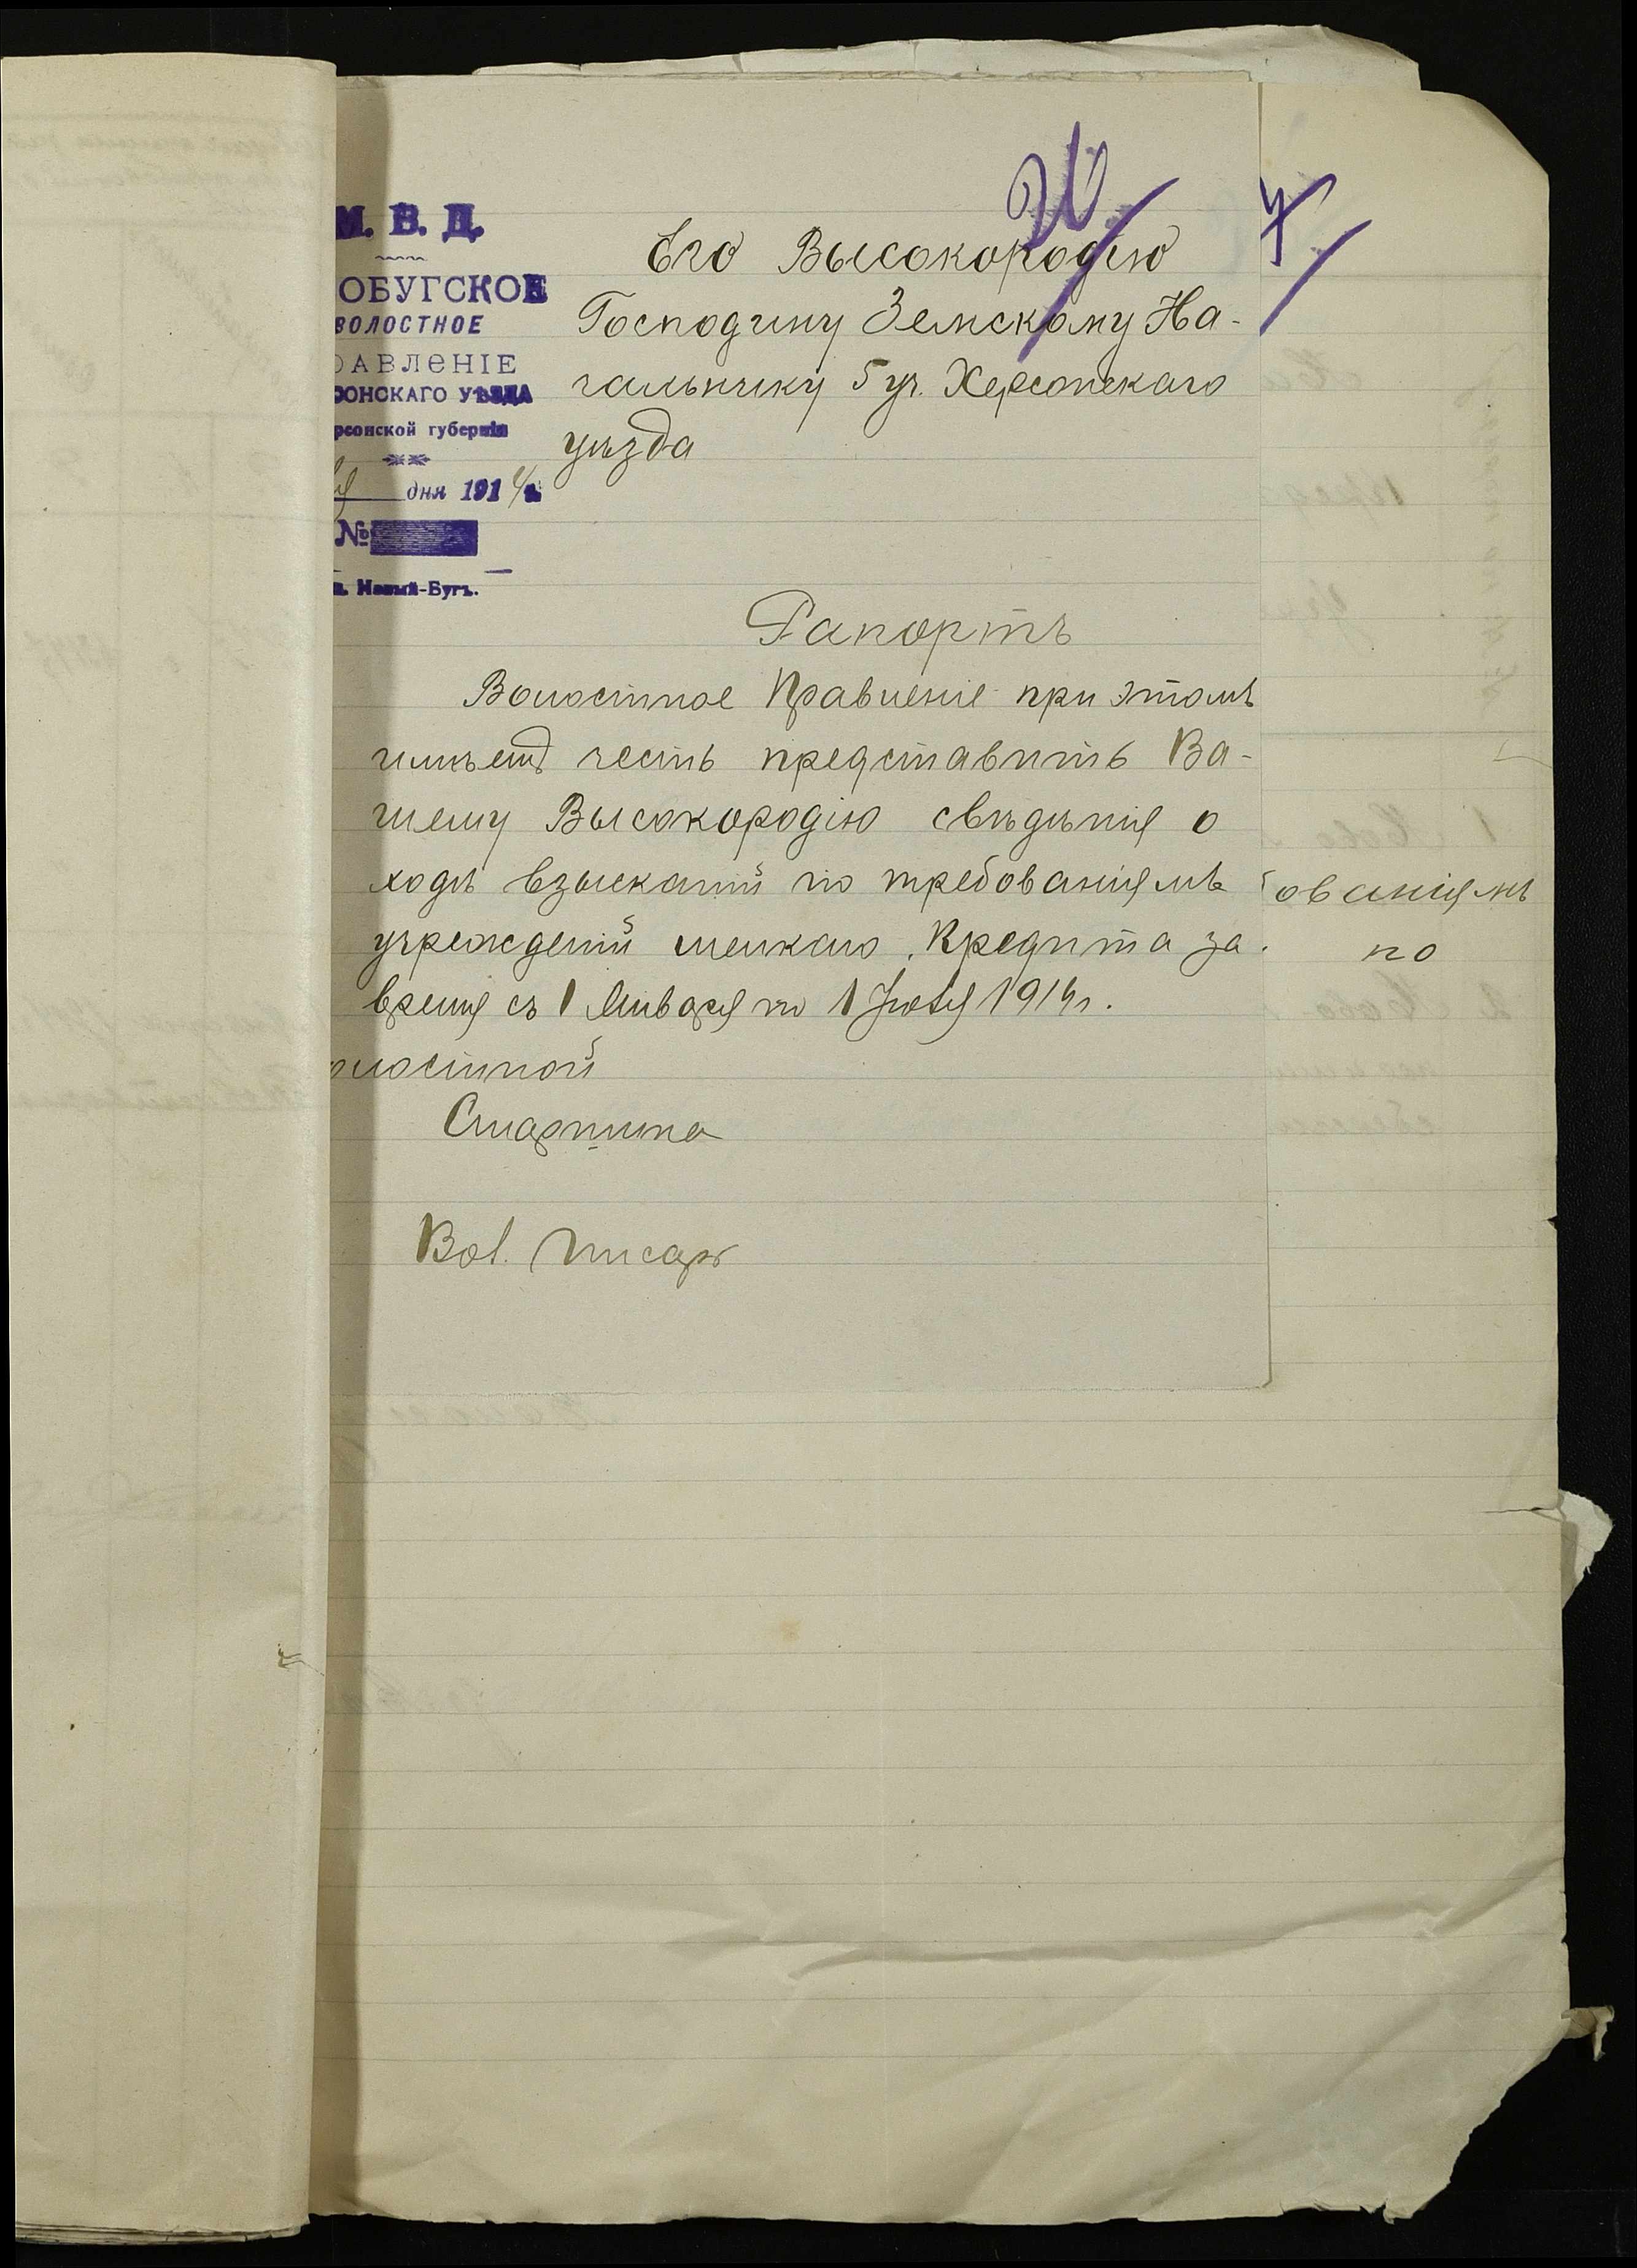 М. В. Д.
ОБУГСКОЕ
ВОЛОСТНОЕ
РАВЛЕНІЕ
СОНСКАГО УѢЗДА
рсонской губерніи
дня 1914 г.
№
п. Новый-Бугъ.
Его Высокородію
Господину Земскому На-
чальнику 5 уч. Херсонскаго
уѣзда
Рапортъ
Волостное Правленіе при этомъ
имѣетъ честь представить Ва-
шему Высокородію свѣдѣнія о
ходѣ взысканій по требованіямъ
учрежденій мелкаго Кредита за
время съ 1 Января по 1 Іюля 1914 г.
олостной
Старшина
Вол. Писарь
ованіямъ
по